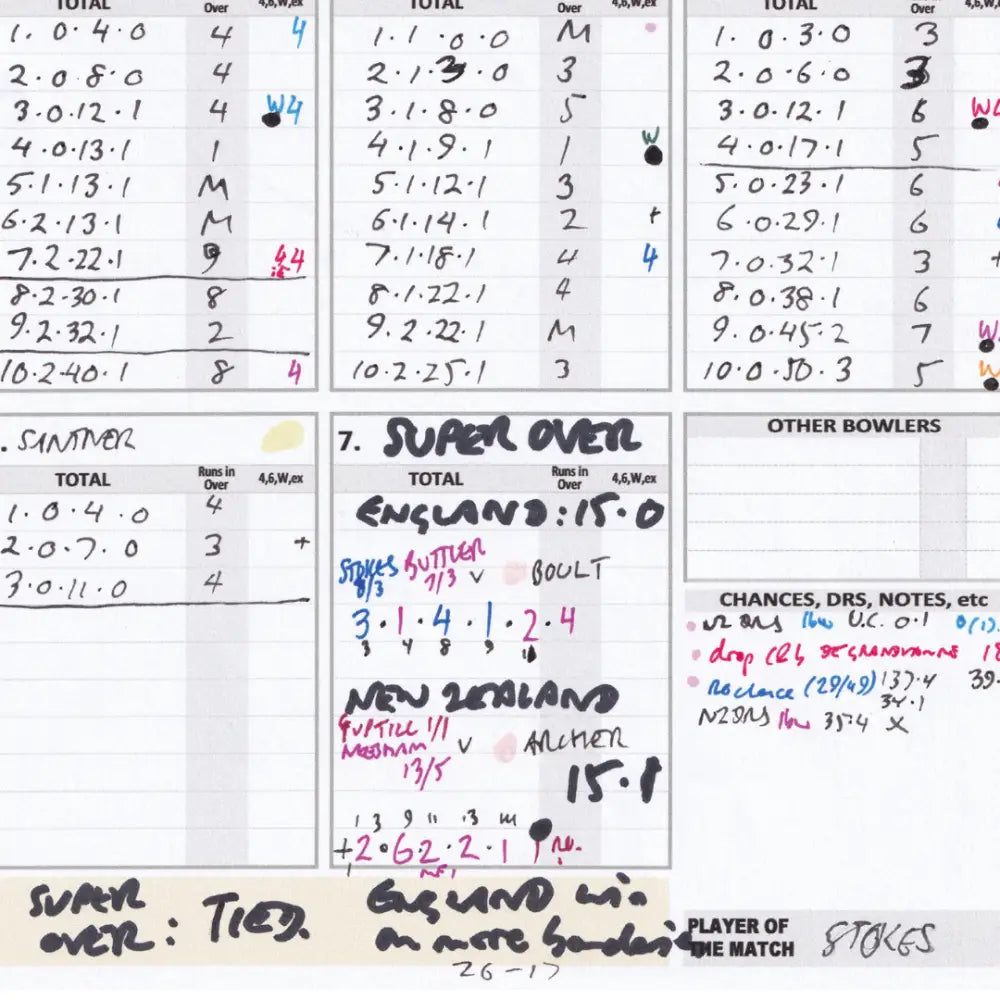 TOTAL Over 4,6,W,ex
1. 0. 4. 0 4 4
2. 0 8. 0 4
3. 0. 12. 1 4 W4
4. 0. 13. 1 1
5. 1. 13. 1 M
6. 2. 13. 1 M
7. 2. 22. 1 9 44
8. 2. 30. 1 8
9. 2. 32. 1 2
10. 2. 40. 1 8 4
TOTAL Over 4,6,W,ex
1. 1. 0. 0 M
2. 1. 3. 0 3
3. 1. 8. 0 5
4. 1. 9. 1 1 W
5. 1. 12. 1 3
6. 1. 14. 1 2 +
7. 1. 18. 1 4 4
8. 1. 22. 1 4
9. 2. 22. 1 M
10. 2. 25. 1 3
TOTAL Over
1. 0. 3. 0 3
2. 0. 6. 0 3
3. 0. 12. 1 6
4. 0. 17. 1 5
5. 0. 23. 1 6
6. 0. 29. 1 6
7. 0. 32. 1 3 +
8. 0. 38. 1 6
9. 0. 45. 2 7 W
10. 0. 50. 3 5 W
. SANTNER
TOTAL Runs in Over 4,6,W,ex
1. 0. 4. 0 4
2. 0. 7. 0 3 +
3. 0. 11. 0 4
7. SUPER OVER
TOTAL Runs in Over 4,6,W,ex
ENGLAND: 15.0
STOKES BUTTLER v BOULT
8/3 7/3
3 . 1 . 4 . 1 . 2 . 4
3 4 8 9 11
NEW ZEALAND
GUPTILL 1/1
NEESHAM v ARCHER
13/5
15.1
1 3 9 11 13 14
+ 2 . 6 2 . 2 . 1 r.o.
OTHER BOWLERS
CHANCES, DRS, NOTES, etc
NZ DRS lbw U.C. 0.1 0(1)
drop C&b DE GRANDHOMME 18
No chance (29/49) 137.4 39.
34.1
NZ DRS lbw 35.4 X
SUPER OVER: TIED.
ENGLAND win on more boundaries
26-17
PLAYER OF THE MATCH STOKES